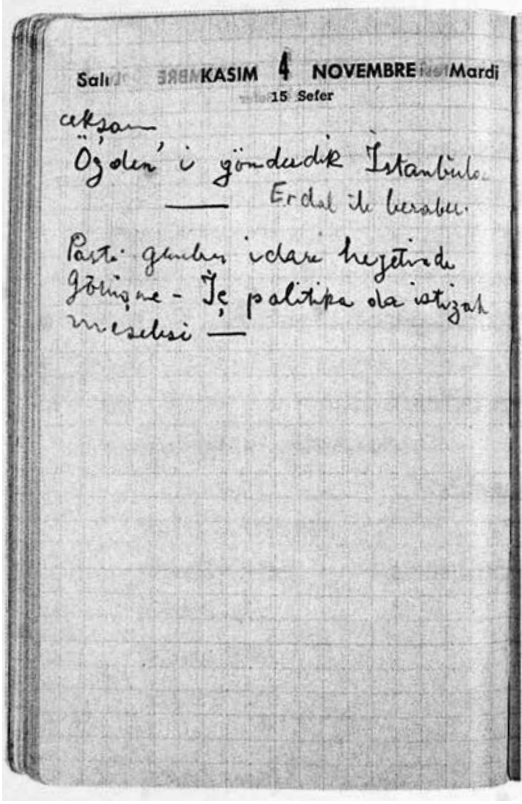 Salı KASIM 4 NOVEMBRE Mardi
15 Sefer
akşam
Özden'i gönderdik İstanbula
Erdal ile beraber.
Parti genel idare heyetinde
Görüşme - İç politika da istizah
meselesi —